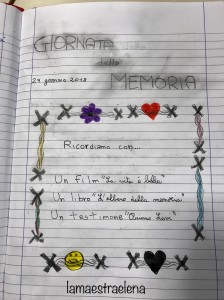 GIORNATA
della
27 gennaio 2018
MEMORIA
Ricordiamo con...
Un film "La vita è bella"
Un libro "L'albero della memoria"
Un testimone
lamaestraelena